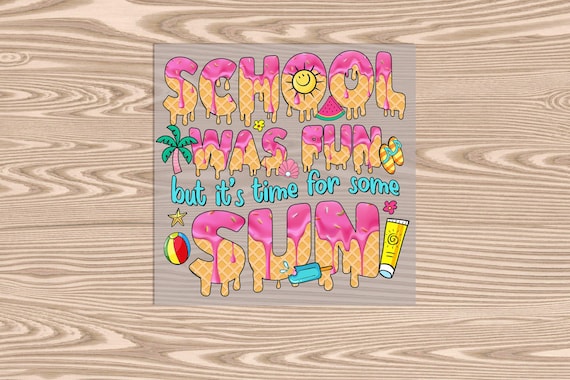 SCHOOL
WAS FUN
but it's time for some
SUN